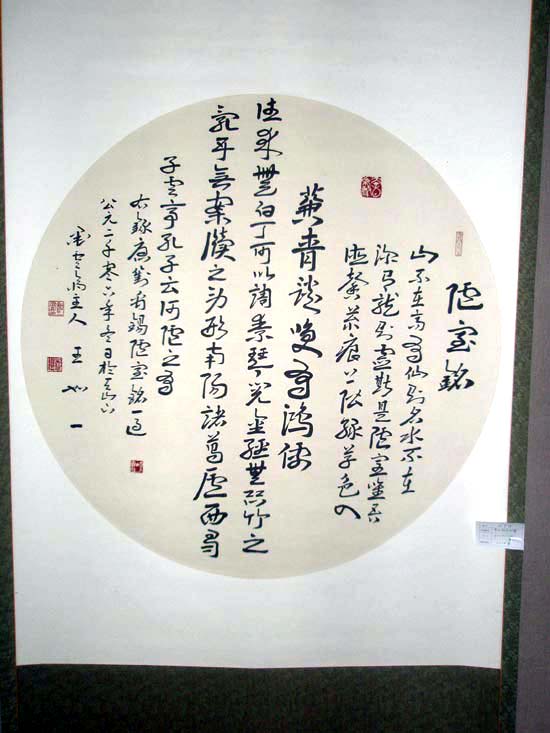 陋室銘
山不在高有仙則名水不在
深有龍則靈斯是陋室唯吾
德馨苔痕上階綠草色入
簾青談笑有鴻儒
往來無白丁可以調素琴閱金經無絲竹之
亂耳無案牘之勞形南陽諸葛廬西蜀
子雲亭孔子云何陋之有
右錄唐劉禹錫陋室銘一遍
公元二千零六年冬日於
主人 王如一